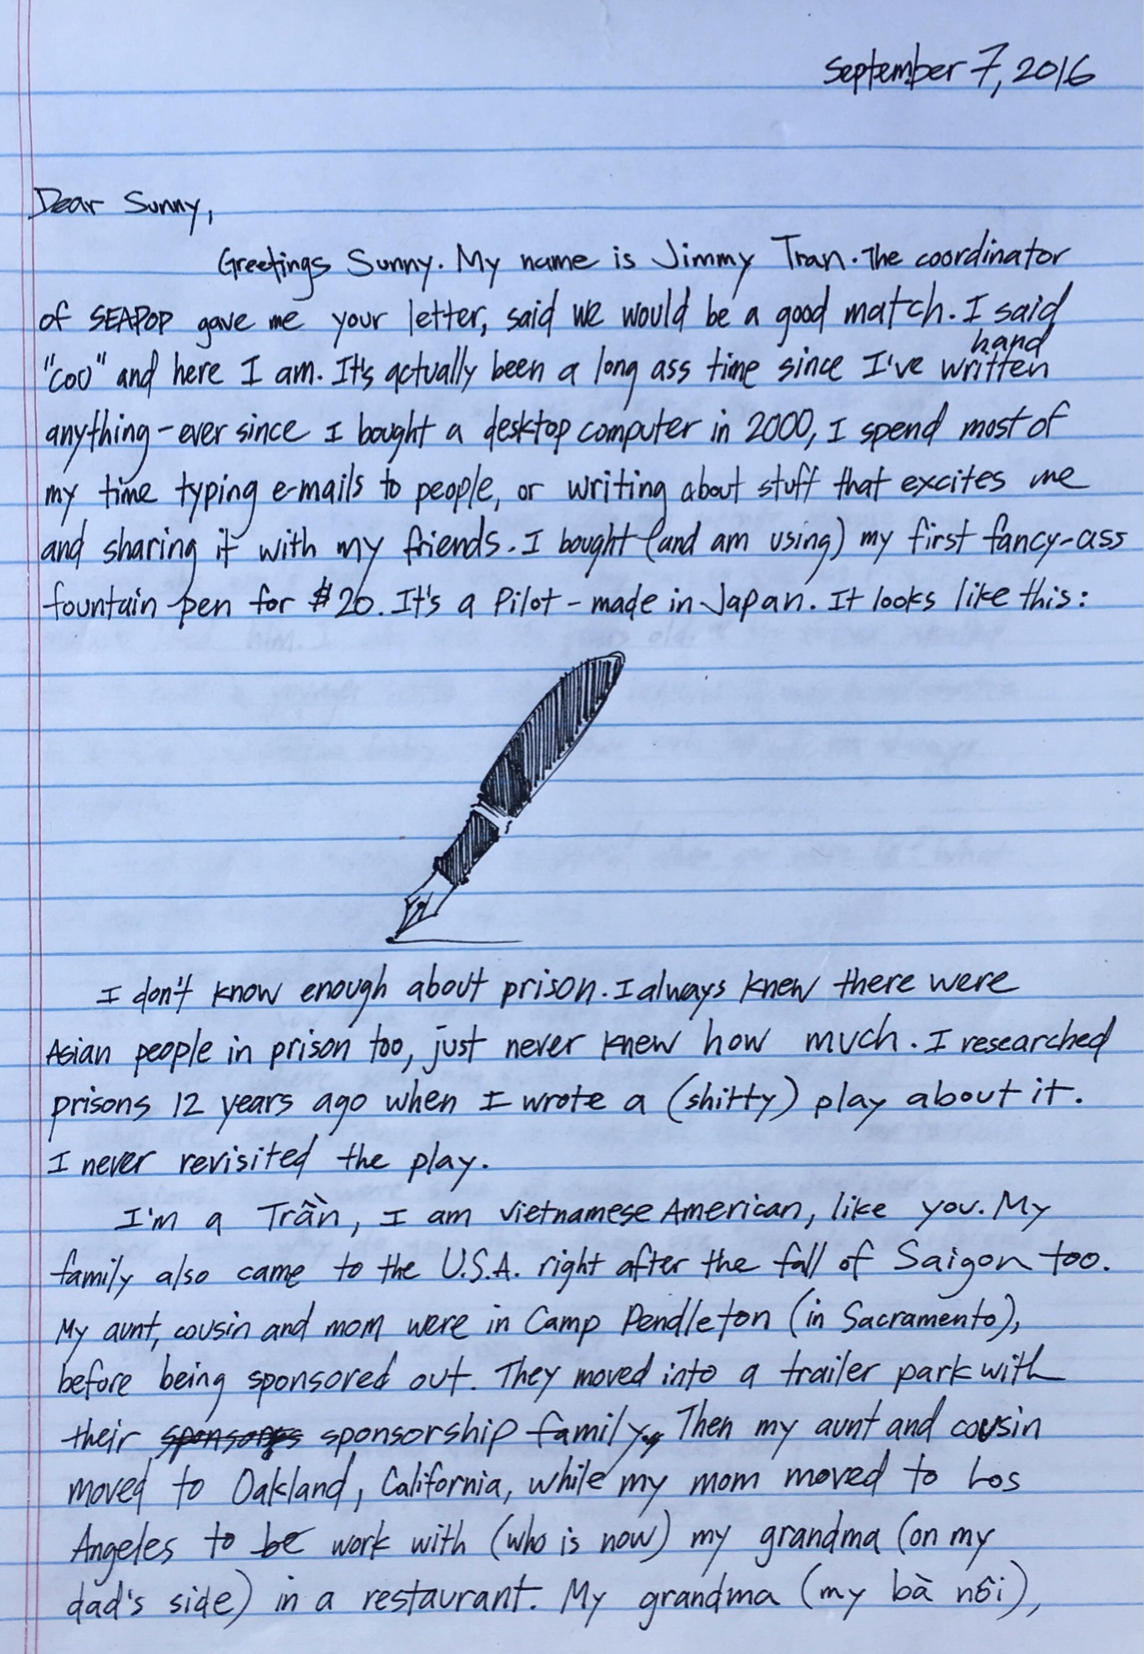 September 7, 2016
Dear Sunny,
Greetings Sunny. My name is Jimmy Tran. The coordinator
of SEAPOP gave me your letter, said we would be a good match. I said
hand
"coo" and here I am. It's actually been a long ass time since I've written
anything - ever since I bought a desktop computer in 2000, I spend most of
my time typing e-mails to people, or writing about stuff that excites me
and sharing it with my friends. I bought (and am using) my first fancy-ass
fountain pen for $20. It's a Pilot - made in Japan. It looks like this:
I don't know enough about prison. I always knew there were
Asian people in prison too, just never knew how much. I researched
prisons 12 years ago when I wrote a (shitty) play about it.
I never revisited the play.
I'm a Trần, I am Vietnamese American, like you. My
family also came to the U.S.A. right after the fall of Saigon too.
My aunt, cousin and mom were in Camp Pendleton (in Sacramento),
before being sponsored out. They moved into a trailer park with
their sponsorship family. Then my aunt and cousin
moved to Oakland, California, while my mom moved to Los
Angeles to be work with (who is now) my grandma (on my
dad's side) in a restaurant. My grandma (my bà nôi),